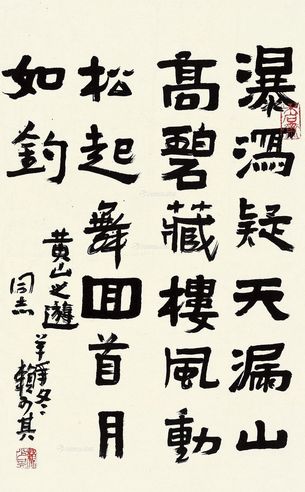 瀑瀉疑天漏山
高碧藏樓風動
松起舞回首月
如鈎
黄山之遊
同志
羊年冬賴少其